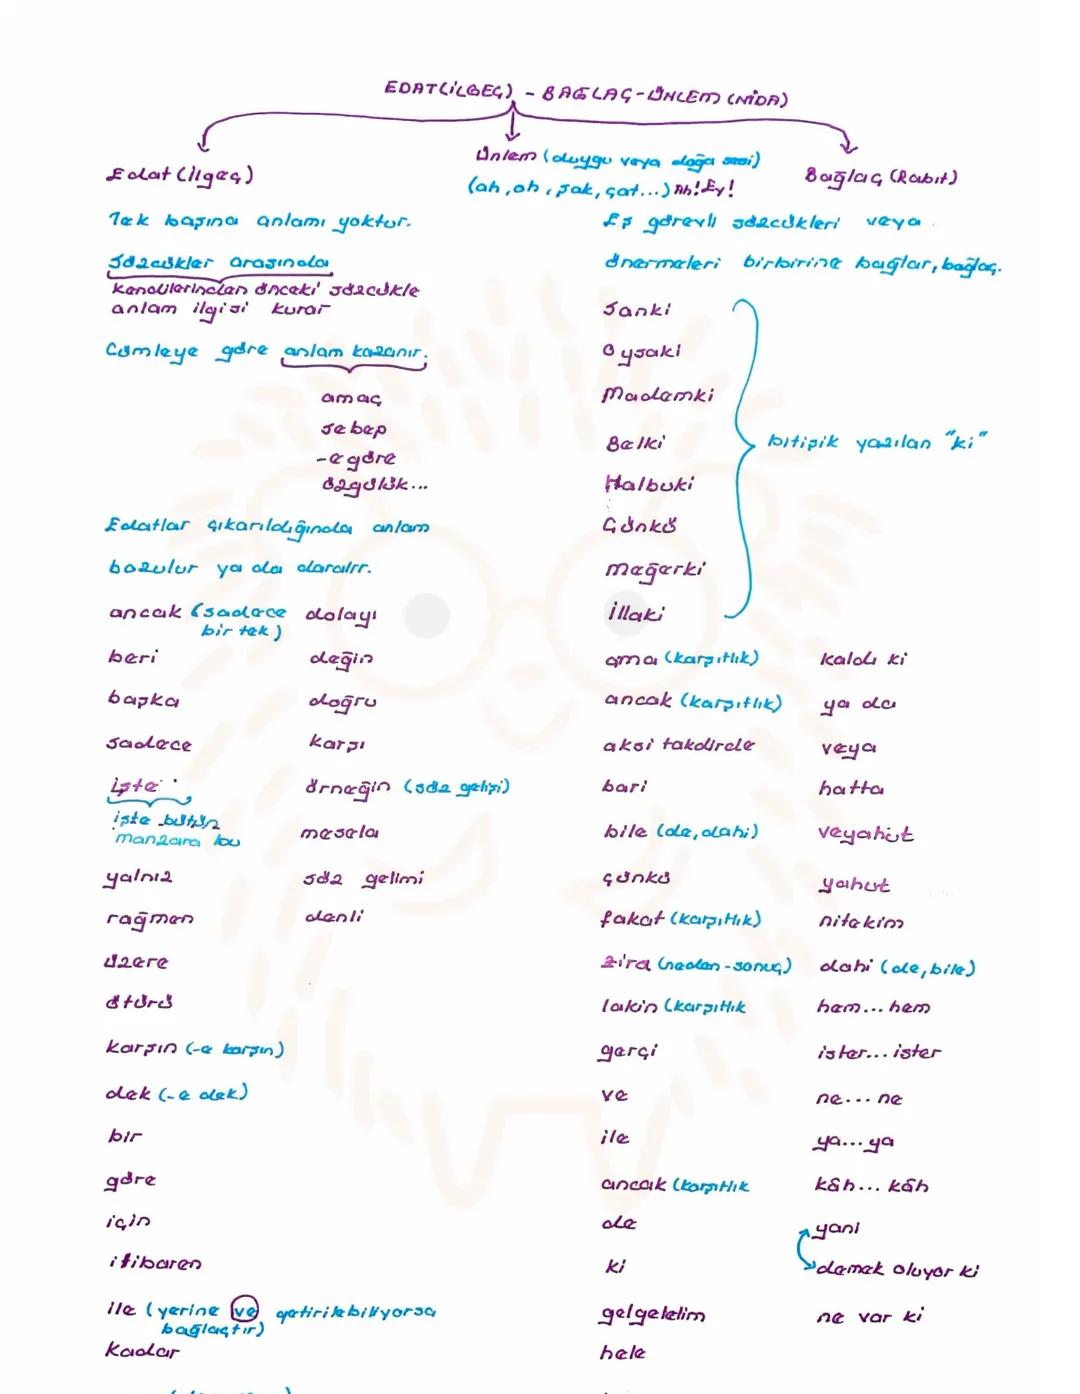 EDAT(İLGEÇ) - BAĞLAÇ-ÜNLEM (NİDA)
Edat (ilgeç)
Tek başına anlamı yoktur.
Sözcükler arasında
kendilerinden önceki sözcükle
anlam ilgisi kurar
Cümleye göre anlam kazanır.
amaç
sebep
-e göre
özgülük...
Edatlar çıkarıldığında anlam
bozulur ya da daralır.
ancak (sadece
bir tek)
dolayı
beri
değin
başka
doğru
sadece
karşı
işte
örneğin (söz gelişi)
işte bütün
manzara bu
mesela
yalnız
söz gelimi
rağmen
denli
üzere
ötürü
karşın (-e karşın)
dek (-e dek)
bir
göre
için
itibaren
ile (yerine ve getirilebiliyorsa
bağlaçtır)
Kadar
Ünlem (duygu veya doğa sesi)
(ah, oh, şak, çat...) Ah! Ey!
Bağlaç (Rabıt)
Eş görevli sözcükleri veya
önermeleri birbirine bağlar, bağlaç.
Sanki
Oysaki
Mademki
Belki
Halbuki
Çünkü
meğerki
İllaki
bitişik yazılan "ki"
ama (karşıtlık)
kaldı ki
ancak (karşıtlık)
ya da
aksi takdirde
veya
bari
hatta
bile (de, dahi)
veyahut
çünkü
yahut
fakat (karşıtlık)
nitekim
zira (neden-sonuç)
dahi (de, bile)
lakin (karşıtlık
hem... hem
gerçi
ister... ister
ve
ne... ne
ile
ya...ya
ancak (karşıtlık
kâh... kâh
de
yani
ki
demek oluyor ki
gelgelelim
ne var ki
hele